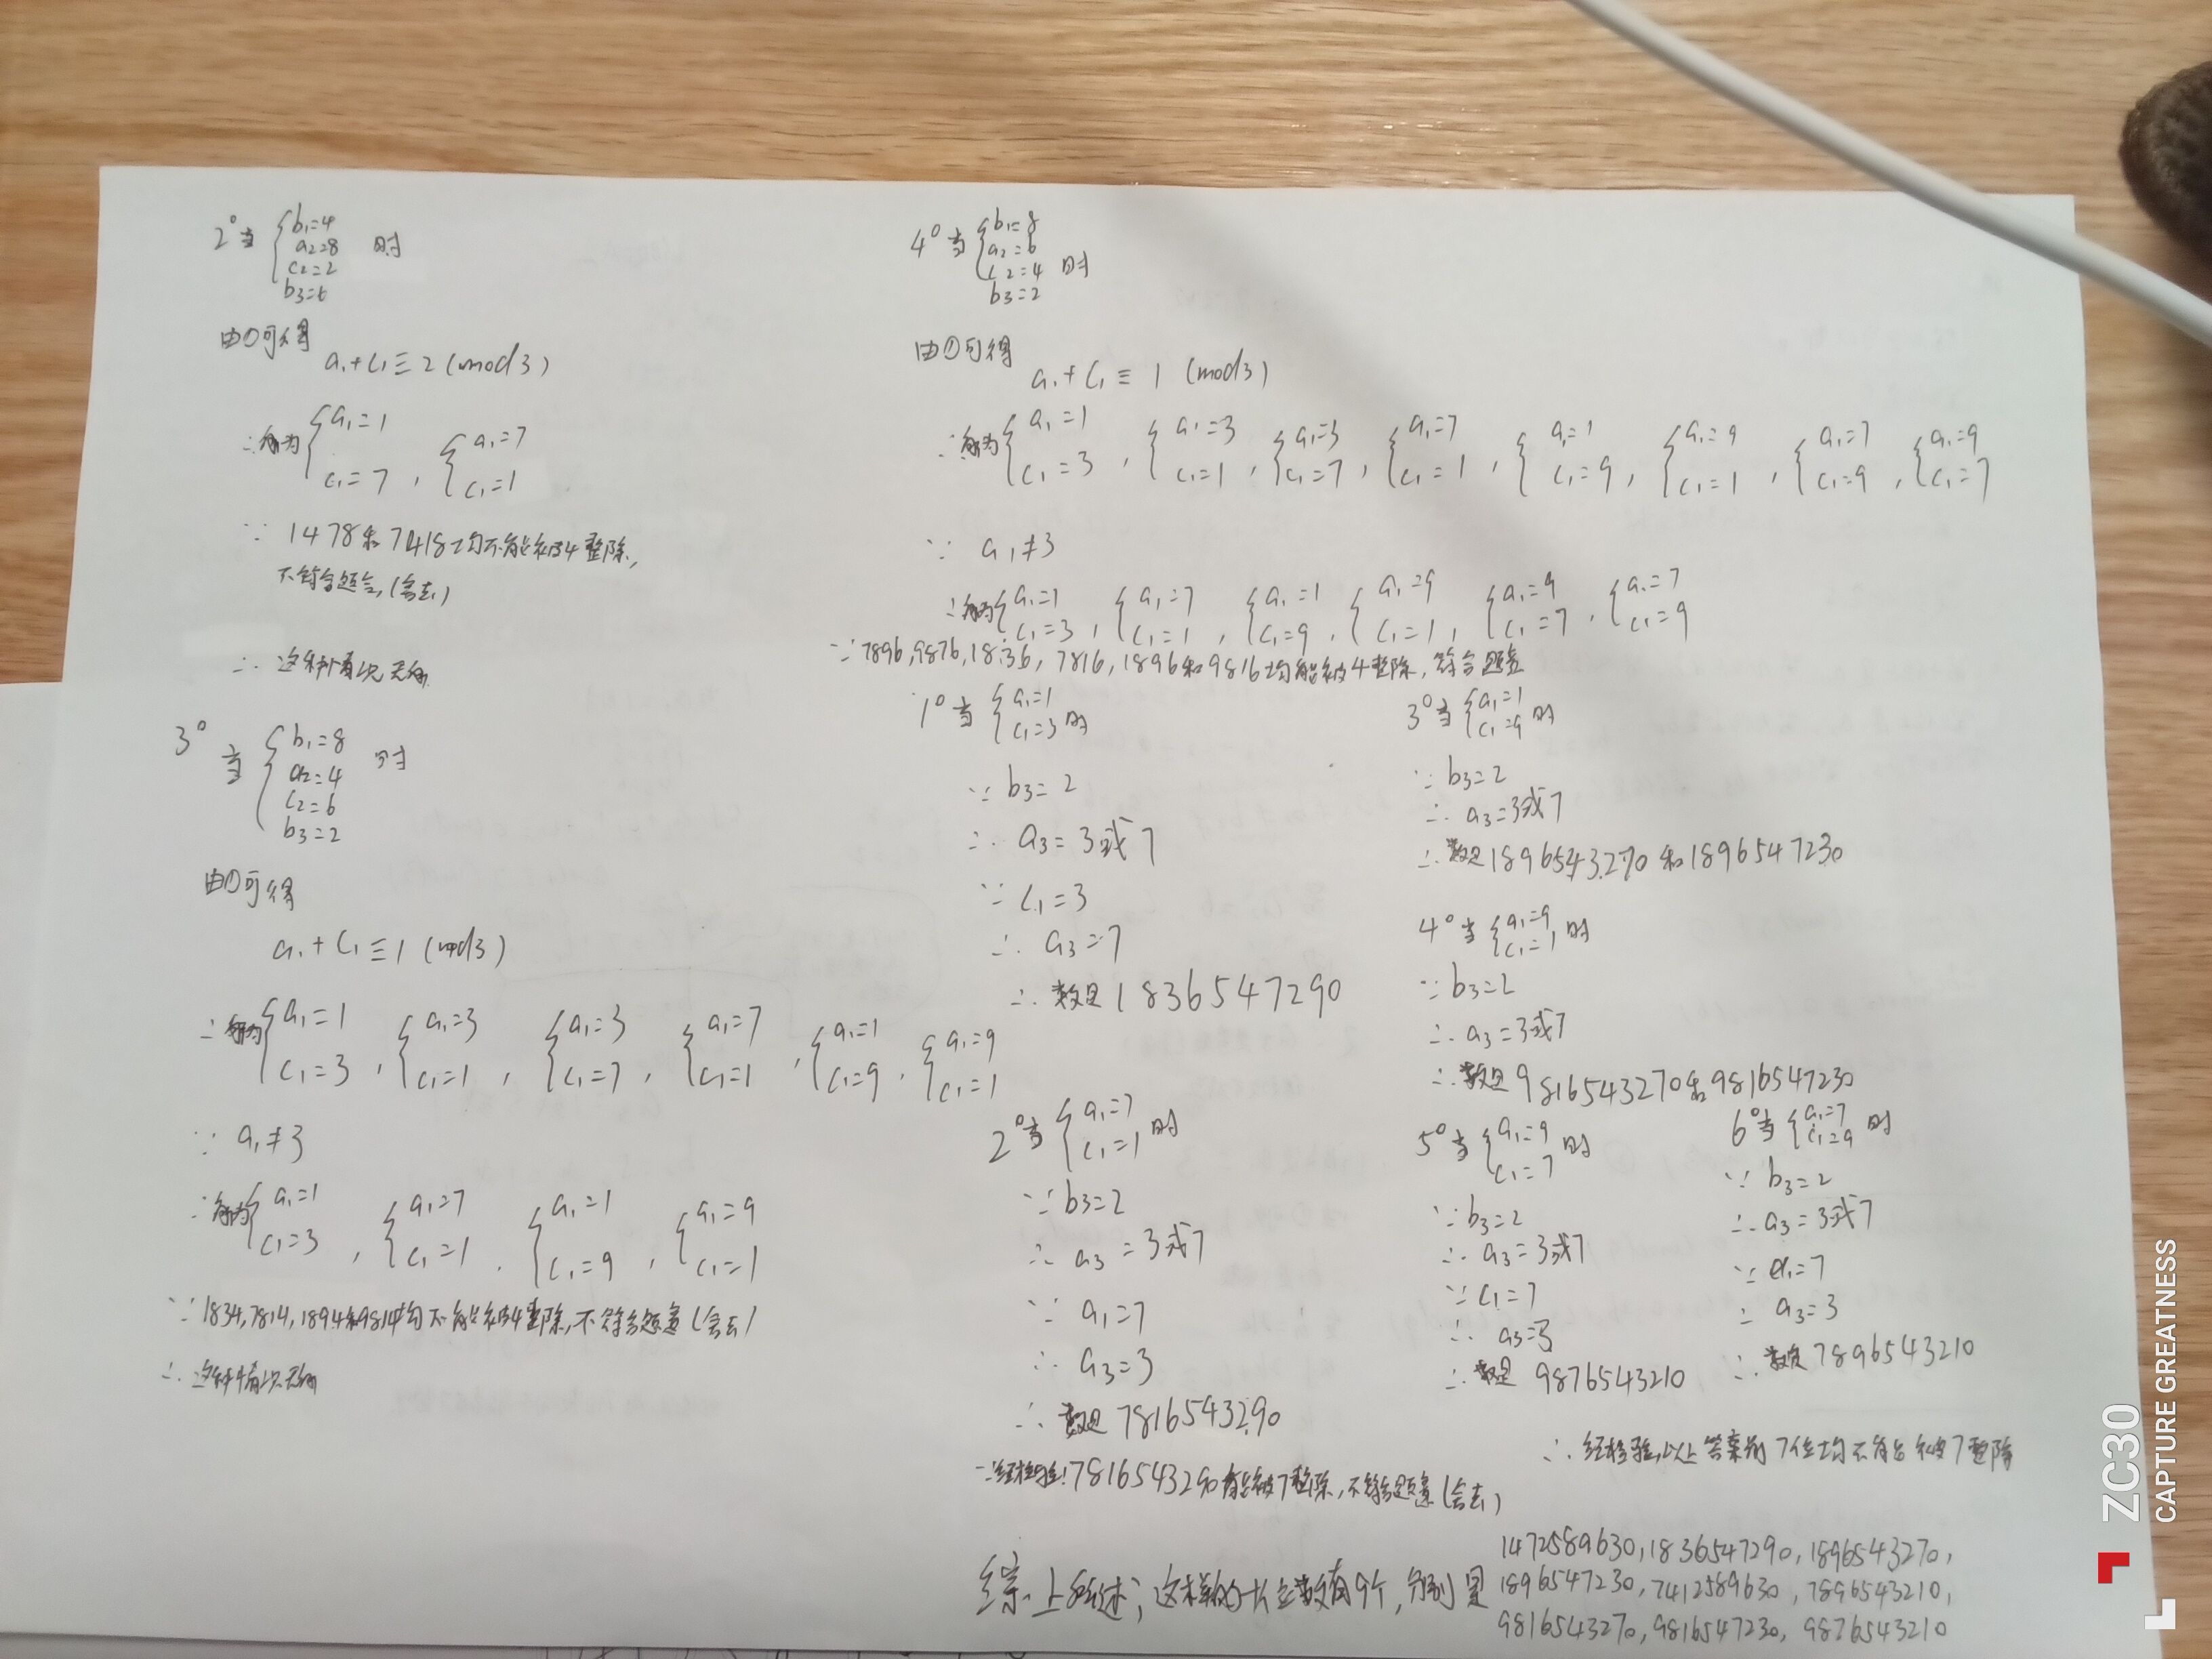 2° 当 { b₁=4
a₂=8
c₂=2
b₃=6 时
由①可得
a₁+c₁≡2 (mod3)
∴解为 { a₁=1 c₁=7 , { a₁=7 c₁=1
∵ 1478和7418均不能被4整除,
不符合题意,(舍去)
∴ 这种情况无解
3° 当 { b₁=8
a₂=4
c₂=6
b₃=2 时
由①可得
a₁+c₁≡1 (mod3)
∴解为 { a₁=1 c₁=3 , { a₁=3 c₁=1 , { a₁=3 c₁=7 , { a₁=7 c₁=1 , { a₁=1 c₁=9 , { a₁=9 c₁=1
∵ a₁≠3
∴解为 { a₁=1 c₁=3 , { a₁=7 c₁=1 , { a₁=1 c₁=9 , { a₁=9 c₁=1
∵ 1834,7814,1894和9814均不能被4整除,不符合题意(舍去)
∴ 这种情况无解
4° 当 { b₁=8
a₂=6
c₂=4
b₃=2 时
由①可得
a₁+c₁≡1 (mod3)
∴解为 { a₁=1 c₁=3 , { a₁=3 c₁=1 , { a₁=3 c₁=7 , { a₁=7 c₁=1 , { a₁=1 c₁=9 , { a₁=9 c₁=1 , { a₁=7 c₁=9 , { a₁=9 c₁=7
∵ a₁≠3
∴解为 { a₁=1 c₁=3 , { a₁=7 c₁=1 , { a₁=1 c₁=9 , { a₁=9 c₁=1 , { a₁=9 c₁=7 , { a₁=7 c₁=9
∵7896,9876,1836,7816,1896和9816均能被4整除,符合题意
1° 当 { a₁=1 c₁=3 时
∵ b₃=2
∴ a₃=3或7
∵ c₁=3
∴ a₃=7
∴ 数是1836547290
2° 当 { a₁=7 c₁=1 时
∵ b₃=2
∴ a₃=3或7
∵ a₁=7
∴ a₃=3
∴ 数是7816543290
∵经检验!7816543290能被7整除,不符合题意(舍去)
3° 当 { a₁=1 c₁=9 时
∵ b₃=2
∴ a₃=3或7
∴ 数是1896543270和1896547230
4° 当 { a₁=9 c₁=1 时
∵ b₃=2
∴ a₃=3或7
∴ 数是9816543270和9816547230
5° 当 { a₁=9 c₁=7 时
∵ b₃=2
∴ a₃=3或7
∵ c₁=7
∴ a₃=3
∴ 数是 9876543210
6° 当 { a₁=7 c₁=9 时
∵ b₃=2
∴ a₃=3或7
∵ a₁=7
∴ a₃=3
∴ 数是7896543210
∴ 经检验,以上答案前7位均不能被7整除
综上所述,这样的十位数有9个,分别是
1472589630,1836547290,1896543270,
1896547230,7412589630,7896543210,
9816543270,9816547230,9876543210
ZC30
CAPTURE GREATNESS